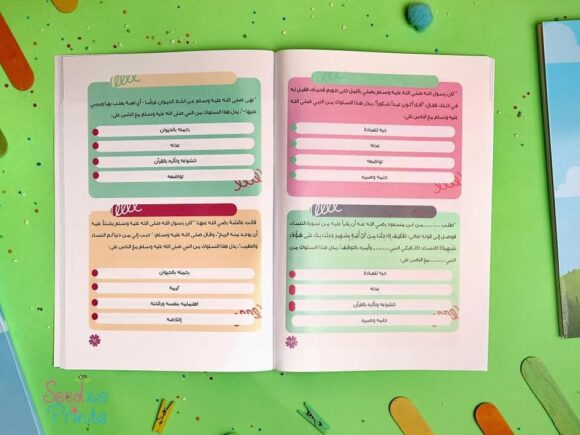 "كان رسول الله صلى الله عليه وسلم يصلي بالليل حتى تتورم قدماه، فقيل له
في ذلك، فقال: "أفلا أكون عبداً شكوراً"، يدل هذا السلوك من النبي صلى الله
عليه وسلم مع الناس على:
حبه للعبادة
عدله
تواضعه
حلمه وصبره
"طلب ........ من ابن مسعود رضي الله عنه أن يقرأ عليه من سورة النساء،
فوصل إلى قوله تعالى: (فكيف إذا جئنا من كل أمة بشهيد وجئنا بك على هؤلاء
شهيدًا) النساء: فبكى النبي ........ وأمره بالتوقف"، يدل هذا السلوك من النبي
........ مع الناس على:
حبه للعبادة
عدله
خشوعه وتأثره بالقرآن
حلمه وصبره
"نهى صلى الله عليه وسلم عن اتخاذ الحيوان غرضًا - أي لعبة يلعب بها ويرمي
عليها -"، يدل هذا السلوك من النبي صلى الله عليه وسلم مع الناس على:
رحمته بالحيوان
عدله
خشوعه وتأثره بالقرآن
تواضعه
قالت عائشة رضي الله عنها: "كان رسول الله صلى الله عليه وسلم يشتد عليه
أن يوجد منه الريح"، وقال صلى الله عليه وسلم: "حبب إلي من دنياكم النساء
والطيب"، يدل هذا السلوك من النبي صلى الله عليه وسلم مع الناس على:
رحمته بالحيوان
كرمه
اهتمامه بنفسه ورائحته
إخلاصه
Seedzo
Prints